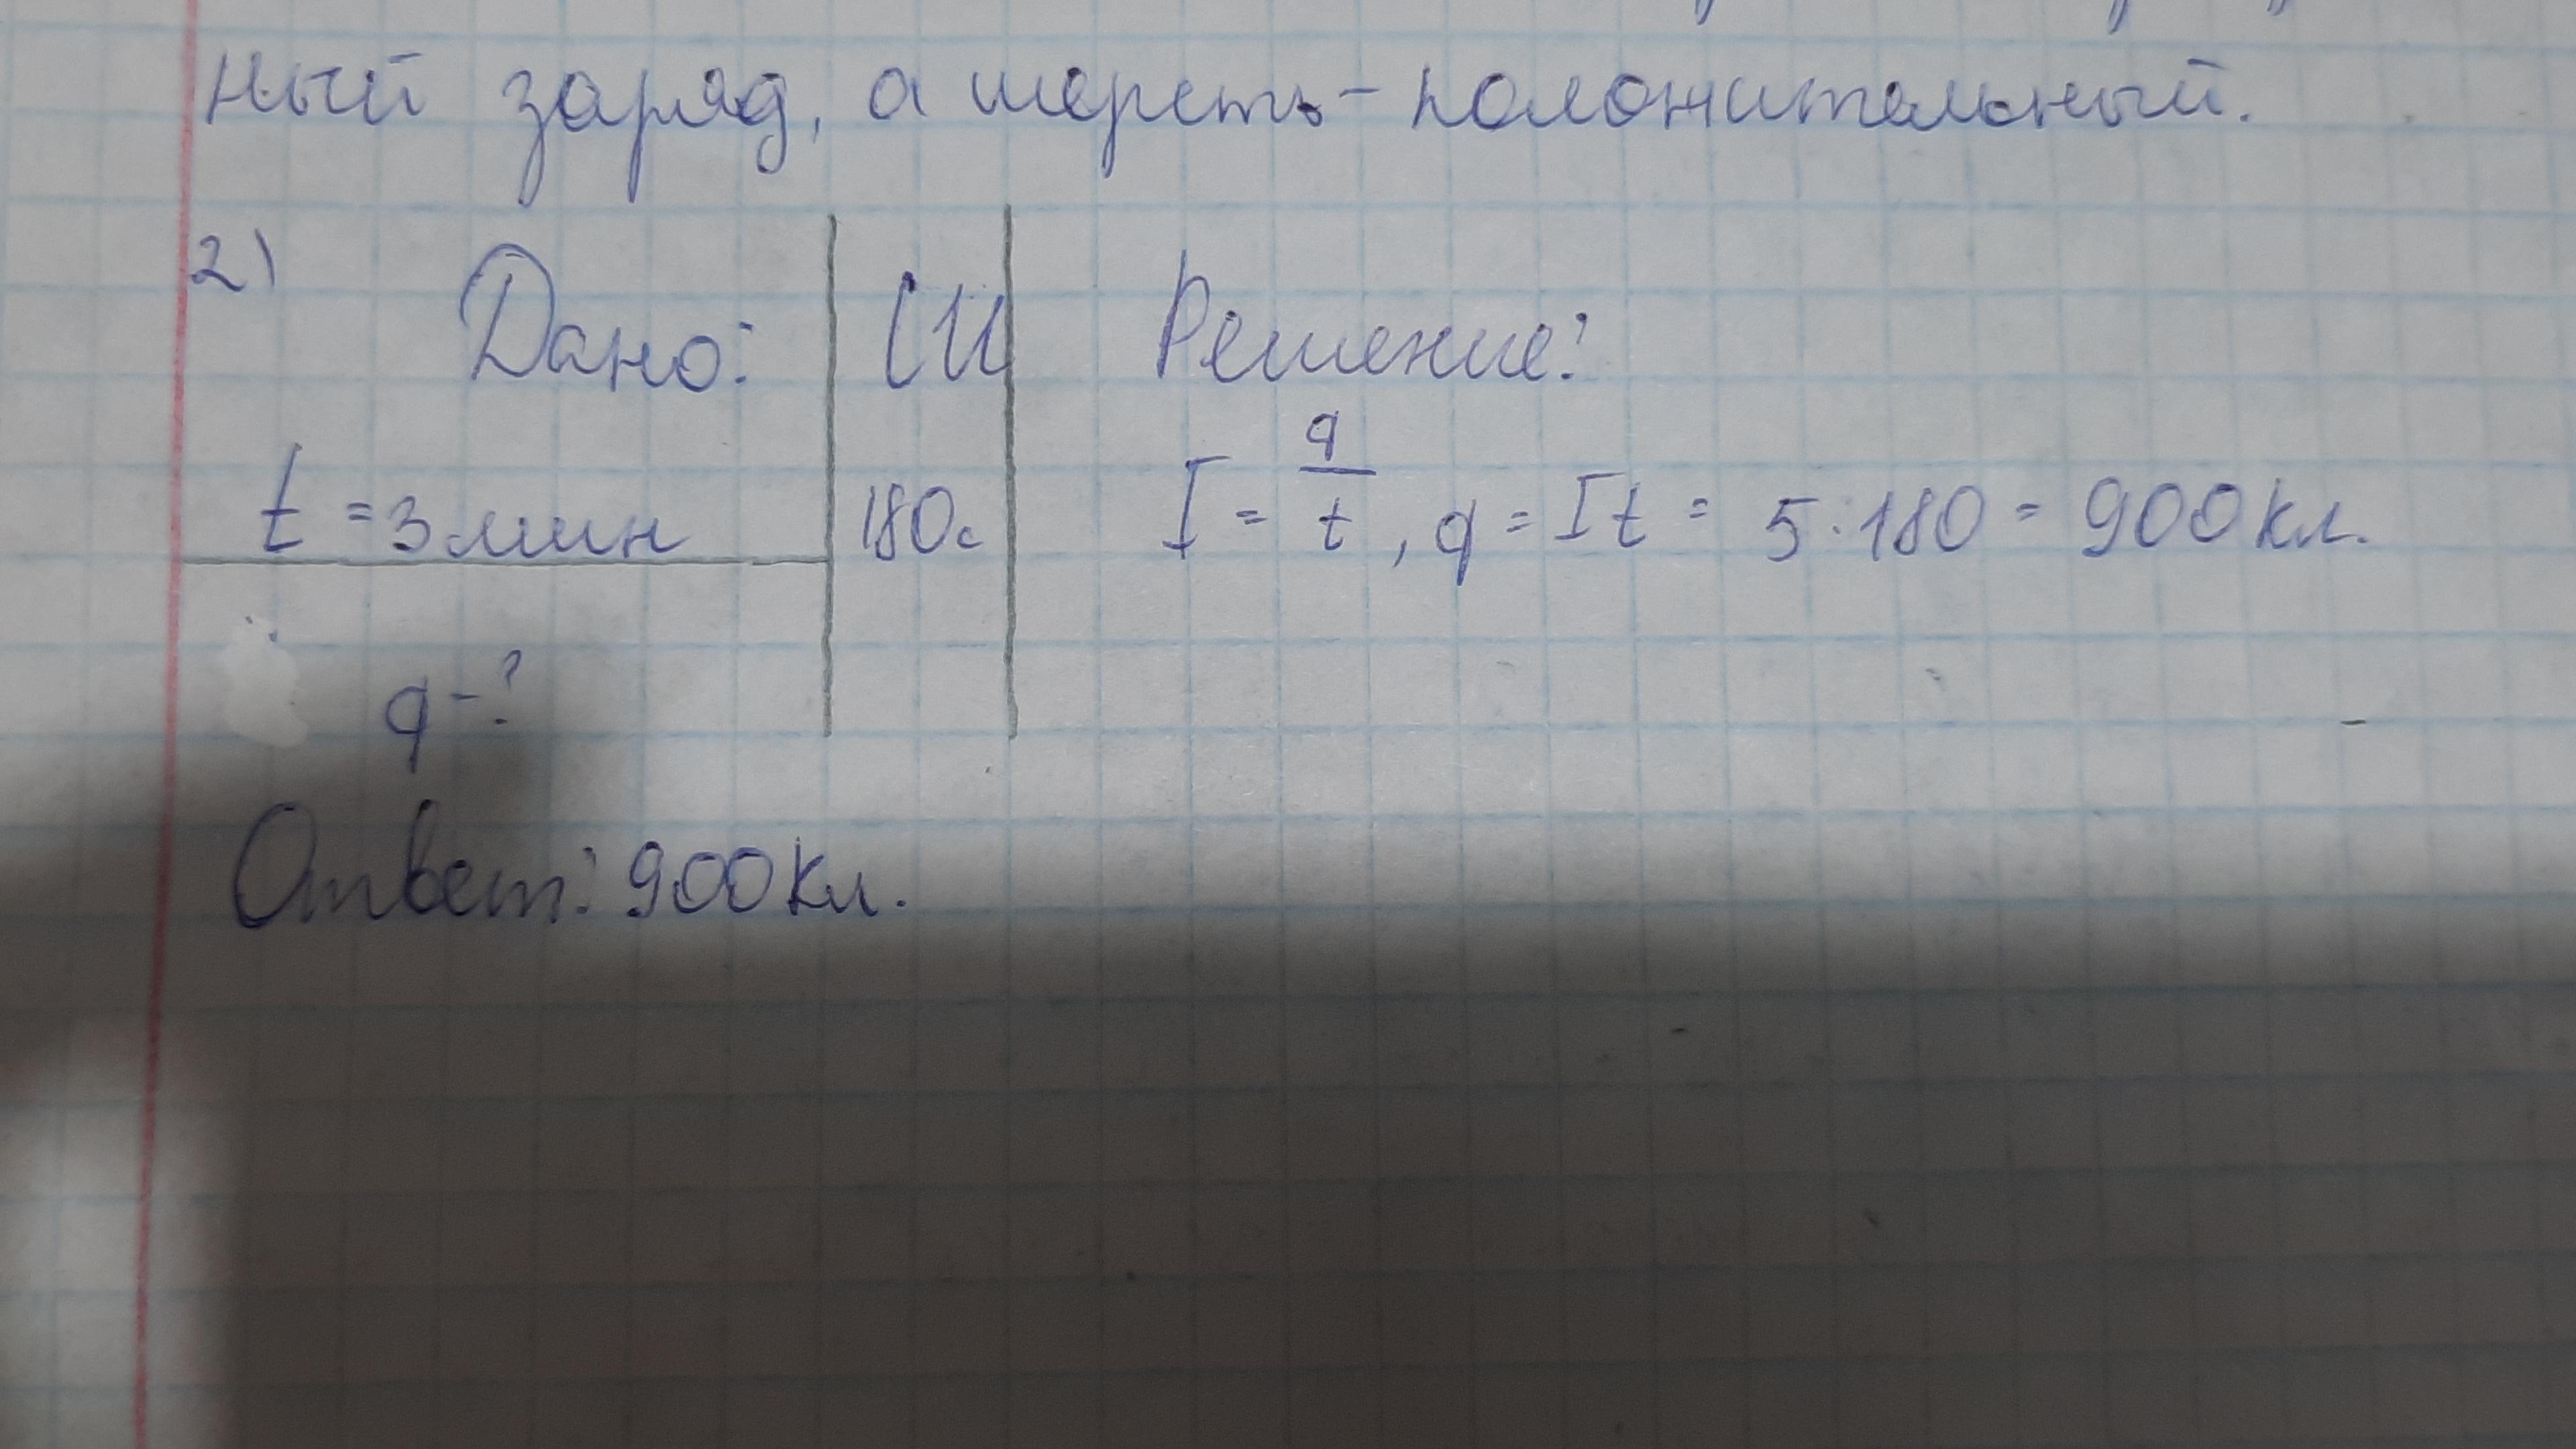 ный заряд, а шерсть - положительный.
2) Дано: СИ Решение:
t = 3 мин 180с I = q/t, q = It = 5·180 = 900 Кл.
q - ?
Ответ: 900 Кл.